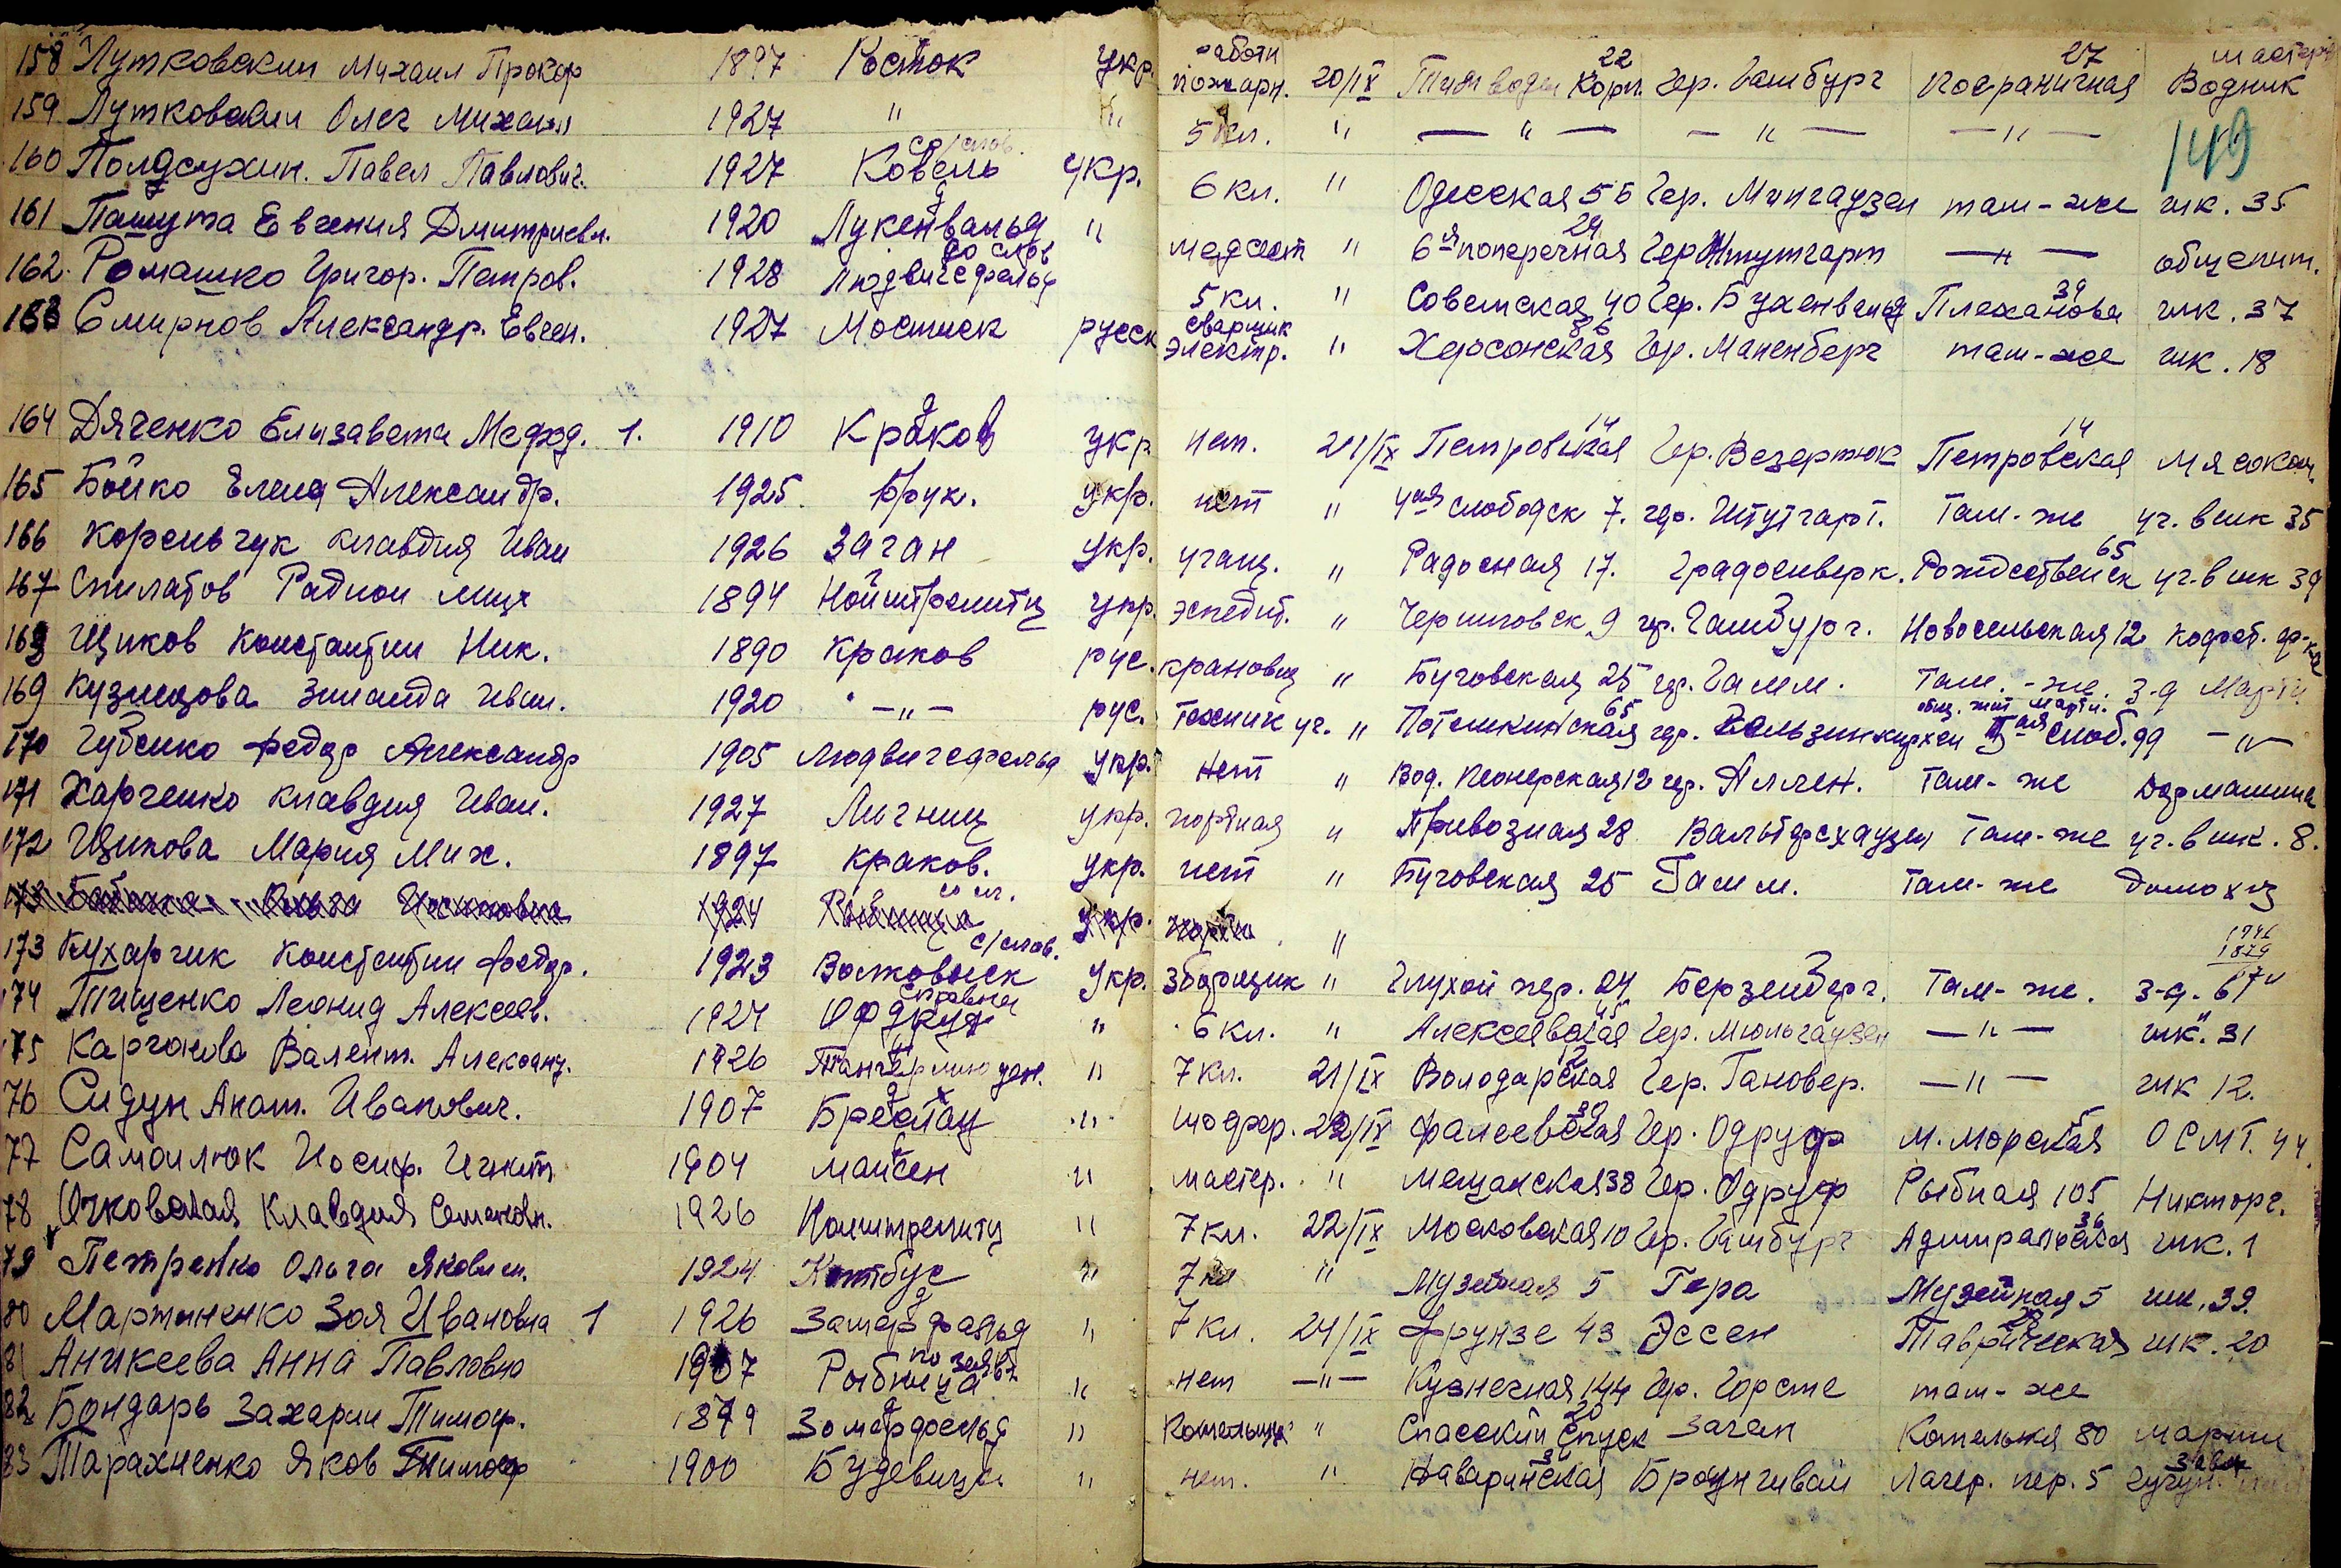 158 Лутковский Михаил Прокоф 1897 Росток укр. работн пожарн. 20/IX Водн 22 Корп. Гер. Гамбург 27 Пограничная мастер Водник
159 Лутковский Олег Михаил 1927 " " 5 кл. " — " — — " — — " —
149
160 Полдсухин. Павел Павлович. 1927 Ковель укр. 6 кл. " Одесская 55 Гер. Мингаузен там-же шк. 35
161 Пашута Евгения Дмитриевн. 1920 Лукенвальд " медсест " 6я поперечная 29 Гер Штутгарт — " — общепит.
162. Ромашко Григор. Петров. 1928 Людвигсфельд 5 кл. " Советская 40 Гер. Бухенвальд Плеханова 39 шк. 37
163 Смирнов Александр. Евген. 1927 Мостиск русск сварщик электр. " Херсонская 86 Гер. Маненберг там-же шк. 18
164 Дяченко Елизавета Мефод. 1. 1910 Краков укр нет. 21/IX Петровская 14 Гер. Везертюк Петровская 14 Мясоком.
165 Бойко Елена Александр. 1925. Брух. укр. нет " 4ая слободск 7. гер. Штутгарт. Там-же уч. в шк 35
166 Корельчук Клавдия Иван 1926 Заган укр. учащ. " Радосная 17. Градоенверк. Рождественск 65 уч. в шк 39
167 Спилатов Радион Мих 1894 Нойштрелитц укр. эспедит. " Черниговск 9 гер. Гамбург. Новосельская 12 кофет. ф-ка
168 Щиков Константин Ник. 1890 Краков рус. крановщ " Буговская 25 гер. Гамм. Там.-же. З-д Марти
169 Кузнецова Зинаида Иван. 1920 — " — рус. Техник уч. " Потемкинская 65 гер. Гельзинкирхен общ. жит Марти. 3ая слоб. 99 — " —
170 Губенко Федор Александр 1905 Людвигсфельд укр. Нет " Вод. Пионерская 12 гер. Аллен. Там-же Дормашина
171 Харченко Клавдия Иван. 1927 Лигниц укр. портная " Привозная 28 Вальтерсхаузен Там-же уч. в шк. 8.
172 Щикова Мария Мих. 1897 Краков. укр. нет " Буговская 25 Гамм. Там-же домохоз
173 Ольга Иосиповна 1924 укр. "
173 Кухарчик Константин Федор. 1923 Волковыск с/слов. укр. Зборщик " Глухой пер. 24 Берзенберг. Там-же. З-д. 67
1946
1879
174 Тищенко Леонид Алексеев. 1927 Офдруф справка " 6 кл. " Алексеевская 45 Гер. Мюльгаузен — " — шк. 31
175 Каргонова Валент. Александ. 1926 Тангермюнден. " 7 кл. 21/IX Володарская 12 Гер. Гановер. — " — шк 12.
76 Сидун Анат. Иванович. 1907 Бреслау " шофер. 22/IX Фалеевская 30 Гер. Одруф М. Морская 5 ОСМТ. 44.
77 Самоилюк Иосиф. Игнат 1904 Майсен " мастер. " Мещанская 38 Гер. Одруф Рыбная 105 Никторг.
78 Очковская Клавдия Семеновн. 1926 Найштрелитц " 7 кл. 22/IX Московская 10 Гер. Гамбург Адмиральская 36 шк. 1
79 Петренко Ольга Яковл. 1924 Котбус " 7 кл " Музейная 5 Гера Музейная 5 шк. 39.
80 Мартыненко Зоя Ивановна 1 1926 Замерфельд " 7 кл. 24/IX Фрунзе 43 Эссен Таврическая 28 шк. 20
81 Аникеева Анна Павловна 1907 Рыбница по заявл " нет — " — Кузнечная 144 Гер. Горсте там-же
82 Бондарь Захарии Тимоф. 1879 Зомерфельд " Котельщик " Спасский Спуск 20 Заген Котельная 80 марти
83 Тарахненко Яков Тимоф 1900 Будевицы " нет. " Наваринская Броунгивай Лагер. пер. 5 завод